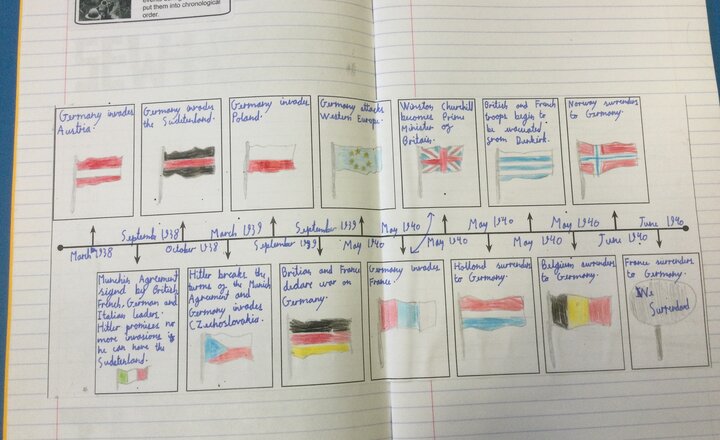 put them into chronological
order.
Germany invades
Austria.
Germany invades
the Sudetenland.
Germany invades
Poland.
Germany attacks
Western Europe.
Winston Churchill
becomes Prime
Minister of
Britain.
British and French
troops begin to
be evacuated
from Dunkirk.
Norway surrenders
to Germany.
September 1938
March 1939
September 1939
May 1940
May 1940
May 1940
June 1940
March 1938
October 1938
September 1939
May 1940
May 1940
May 1940
June 1940
Munich Agreement
signed by British,
French, German and
Italian leaders.
Hitler promises no
more invasions if
he can have the
Sudetenland.
Hitler breaks the
terms on the Munich
Agreement and
Germany invades
Czechoslovakia.
Britian and France
declare war on
Germany.
Germany invades
France.
Holland surrenders
to Germany.
Belgium surrenders
to Germany.
France surrenders
to Germany.
We
Surrendand